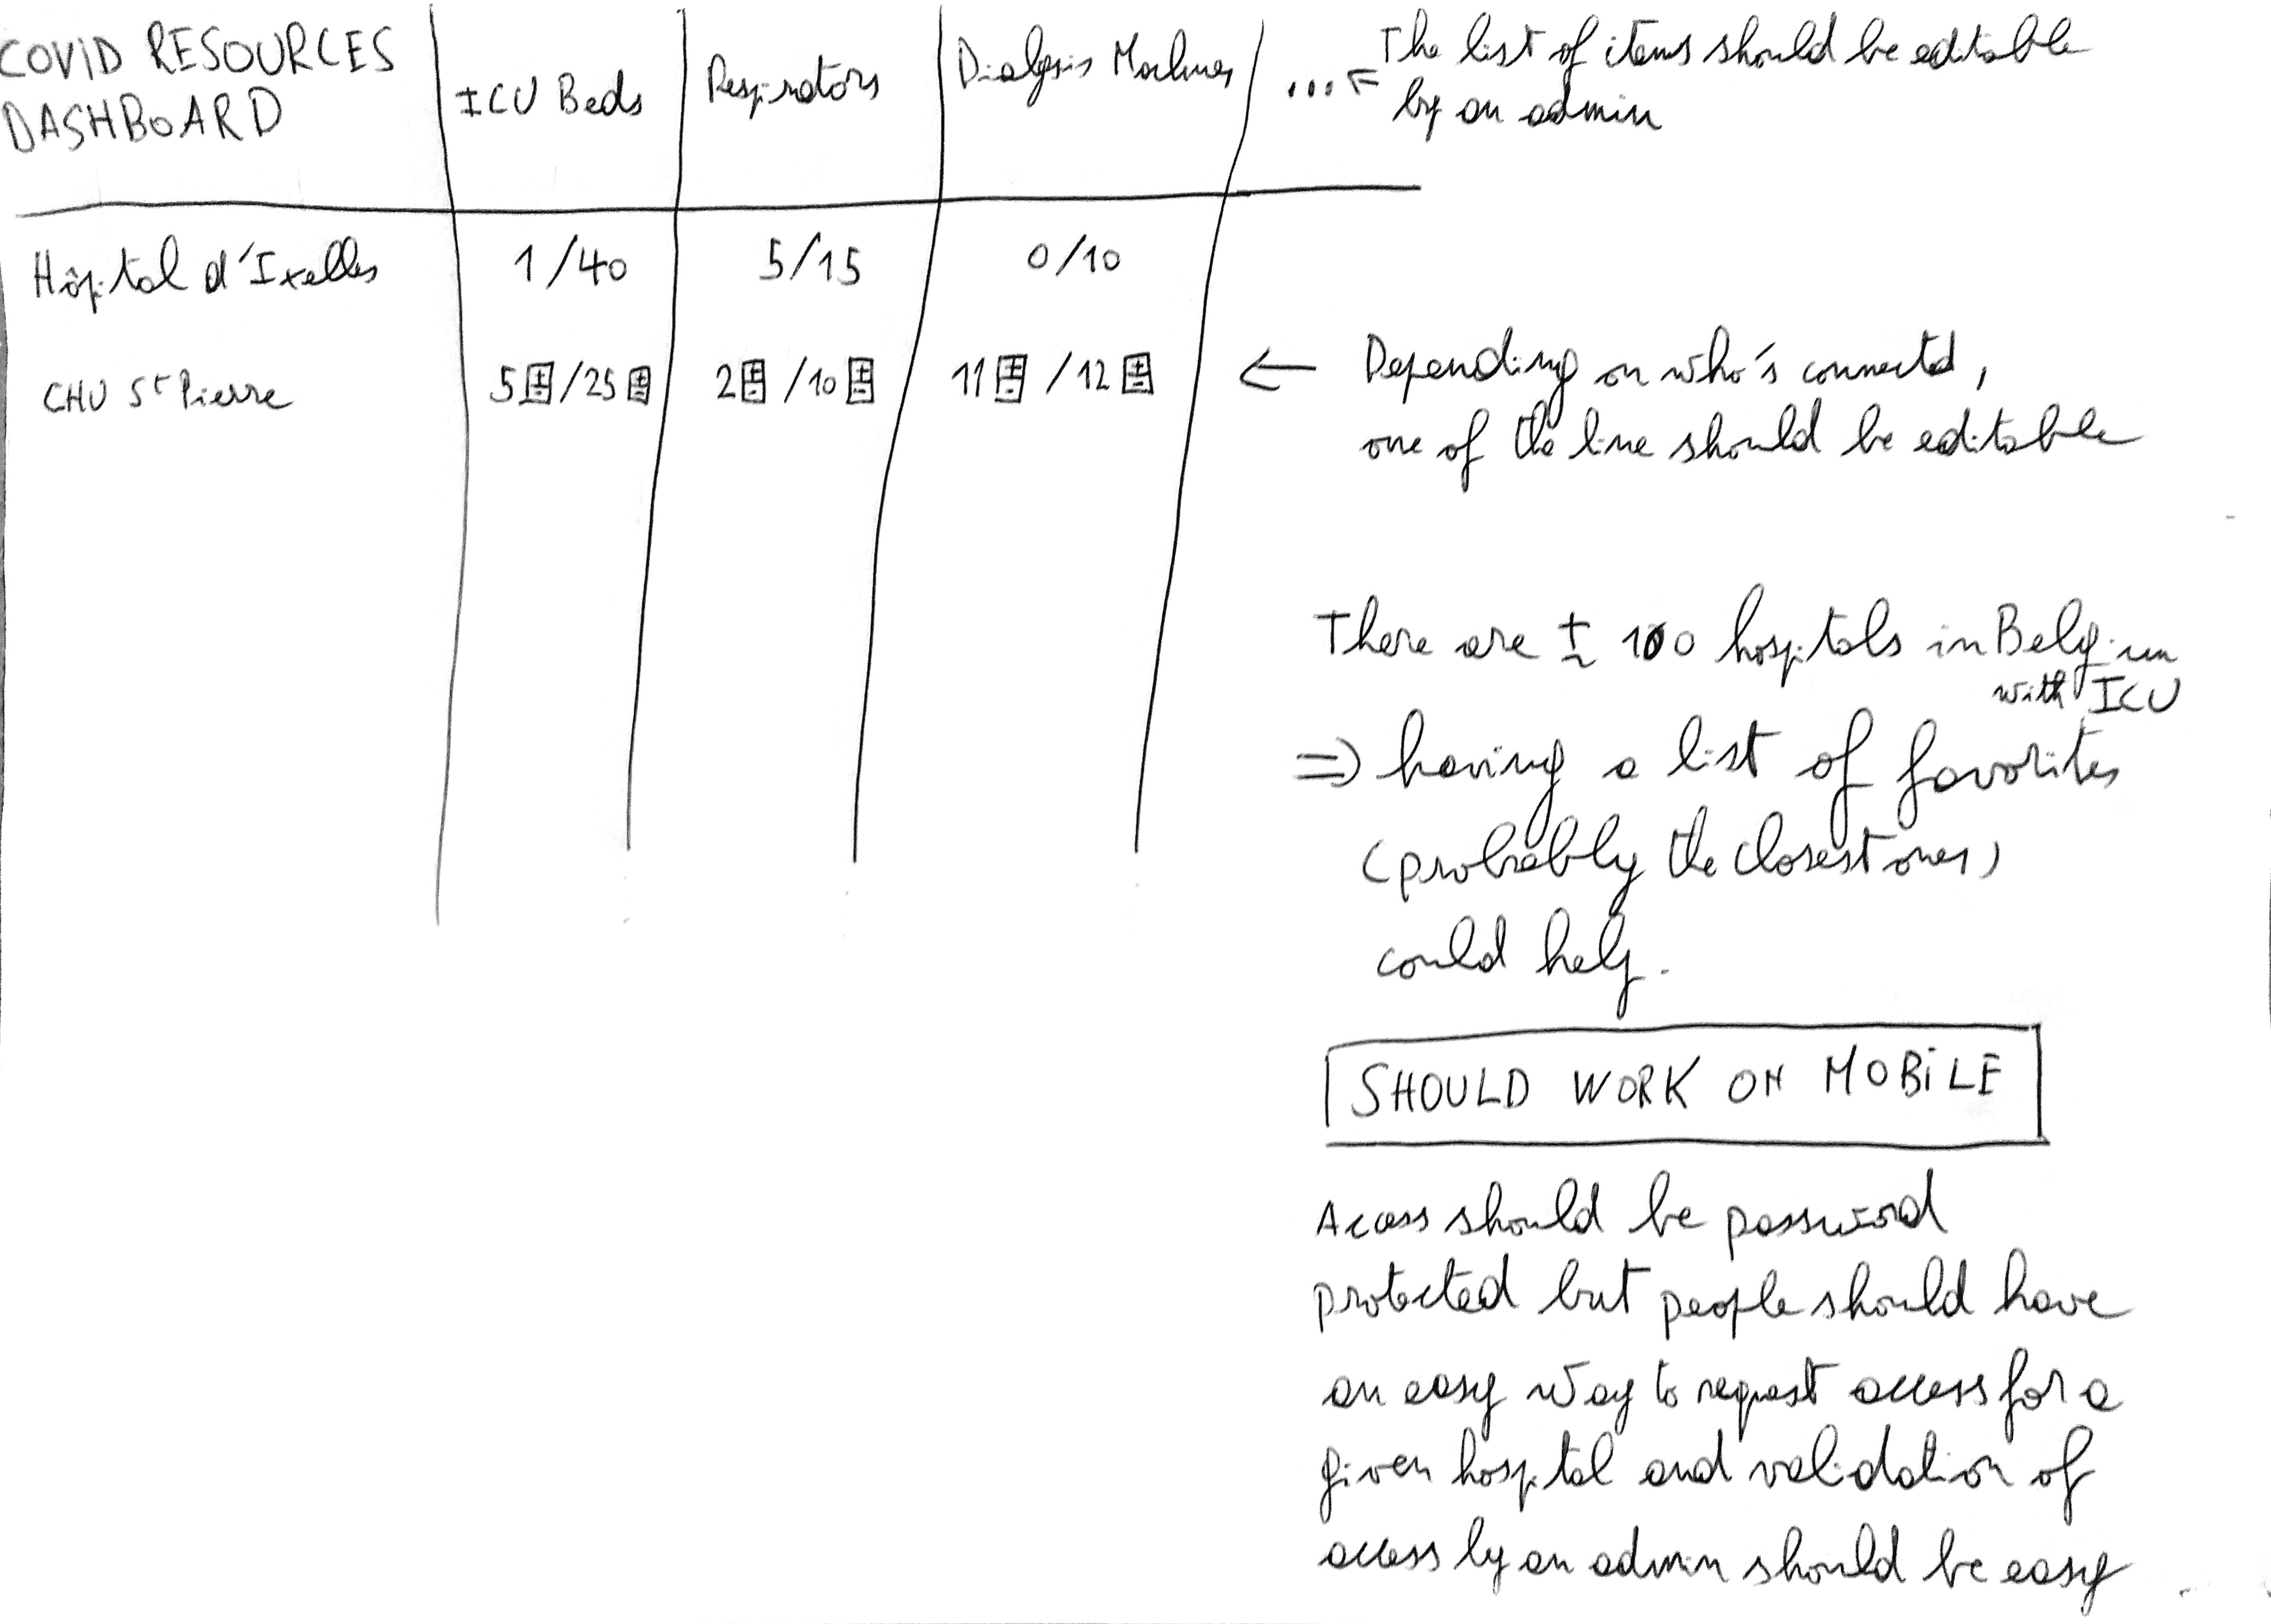 COVID RESOURCES
DASHBOARD
ICU Beds
Respirators
Dialysis Machines
...
The list of items should be editable
by an admin
Hôpital d'Ixelles 1/40 5/15 0/10
CHU St Pierre 5+-/25+- 2+-/10+- 11+-/12+-
← Depending on who's connected,
one of the line should be editable
There are ± 100 hospitals in Belgium
with ICU
=> having a list of favorites
(probably the closest ones)
could help.
SHOULD WORK ON MOBILE
Access should be password
protected but people should have
an easy way to request access for a
given hospital and validation of
access by an admin should be easy